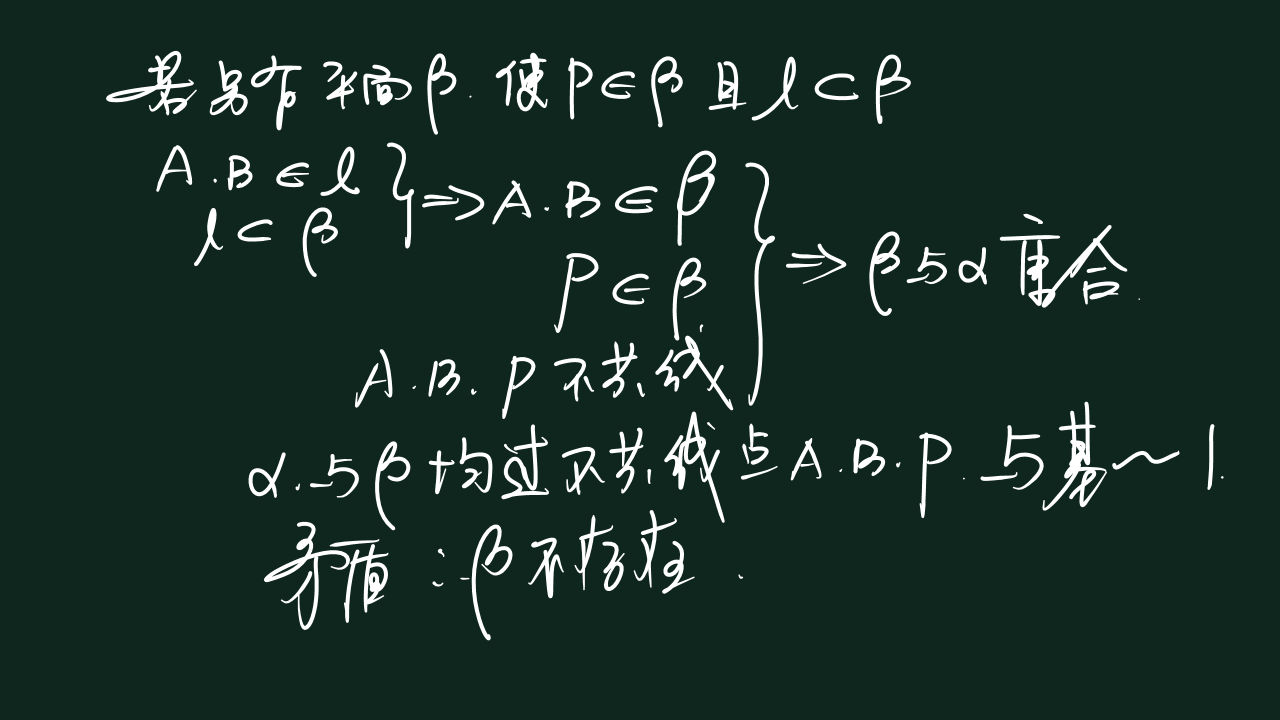 若另有平面β. 使P∈β且l⊂β
A.B∈l
l⊂β
}⇒A.B∈β
P∈β
A.B.P不共线
}⇒β与α重合
α.与β均过不共线点A.B.P.与基~1.
矛盾∴β不存在.